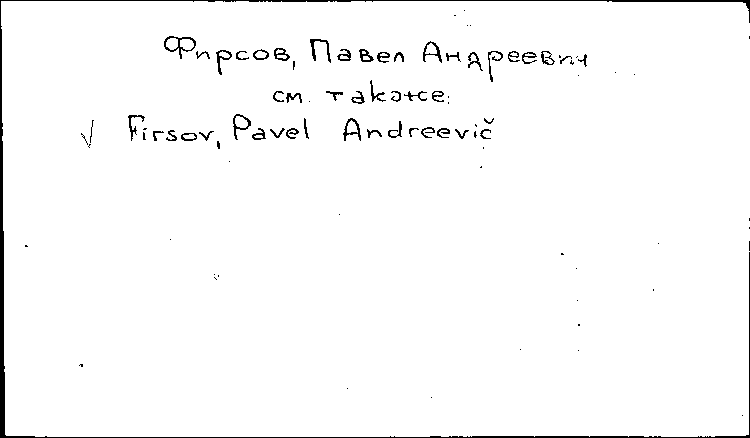 Фирсов, Павел Андреевич
см. также:
√ Firsov, Pavel Andreevič